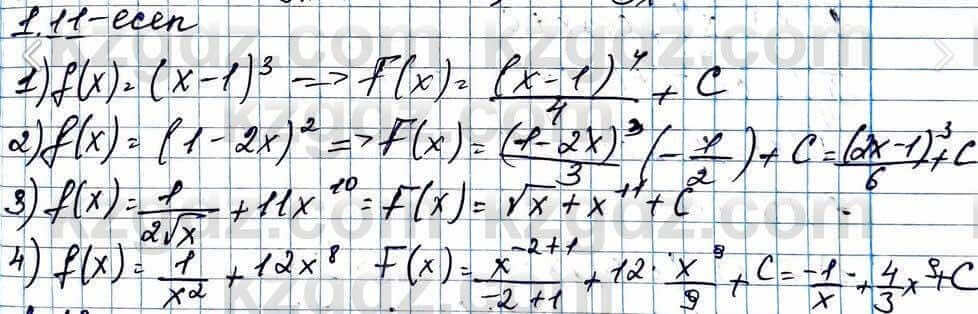 1.11-есеп
1) f(x) = (x-1)³ => F(x) = (x-1)⁴/4 + C
2) f(x) = (1-2x)² => F(x) = (1-2x)³/3 (-1/2) + C = (2x-1)³/6 + C
3) f(x) = 1/2√x + 11x¹⁰ = F(x) = √x + x¹¹ + C
4) f(x) = 1/x² + 12x⁸ F(x) = x⁻²⁺¹/-2+1 + 12 · x⁹/9 + C = -1/x + 4/3 x⁹ + C